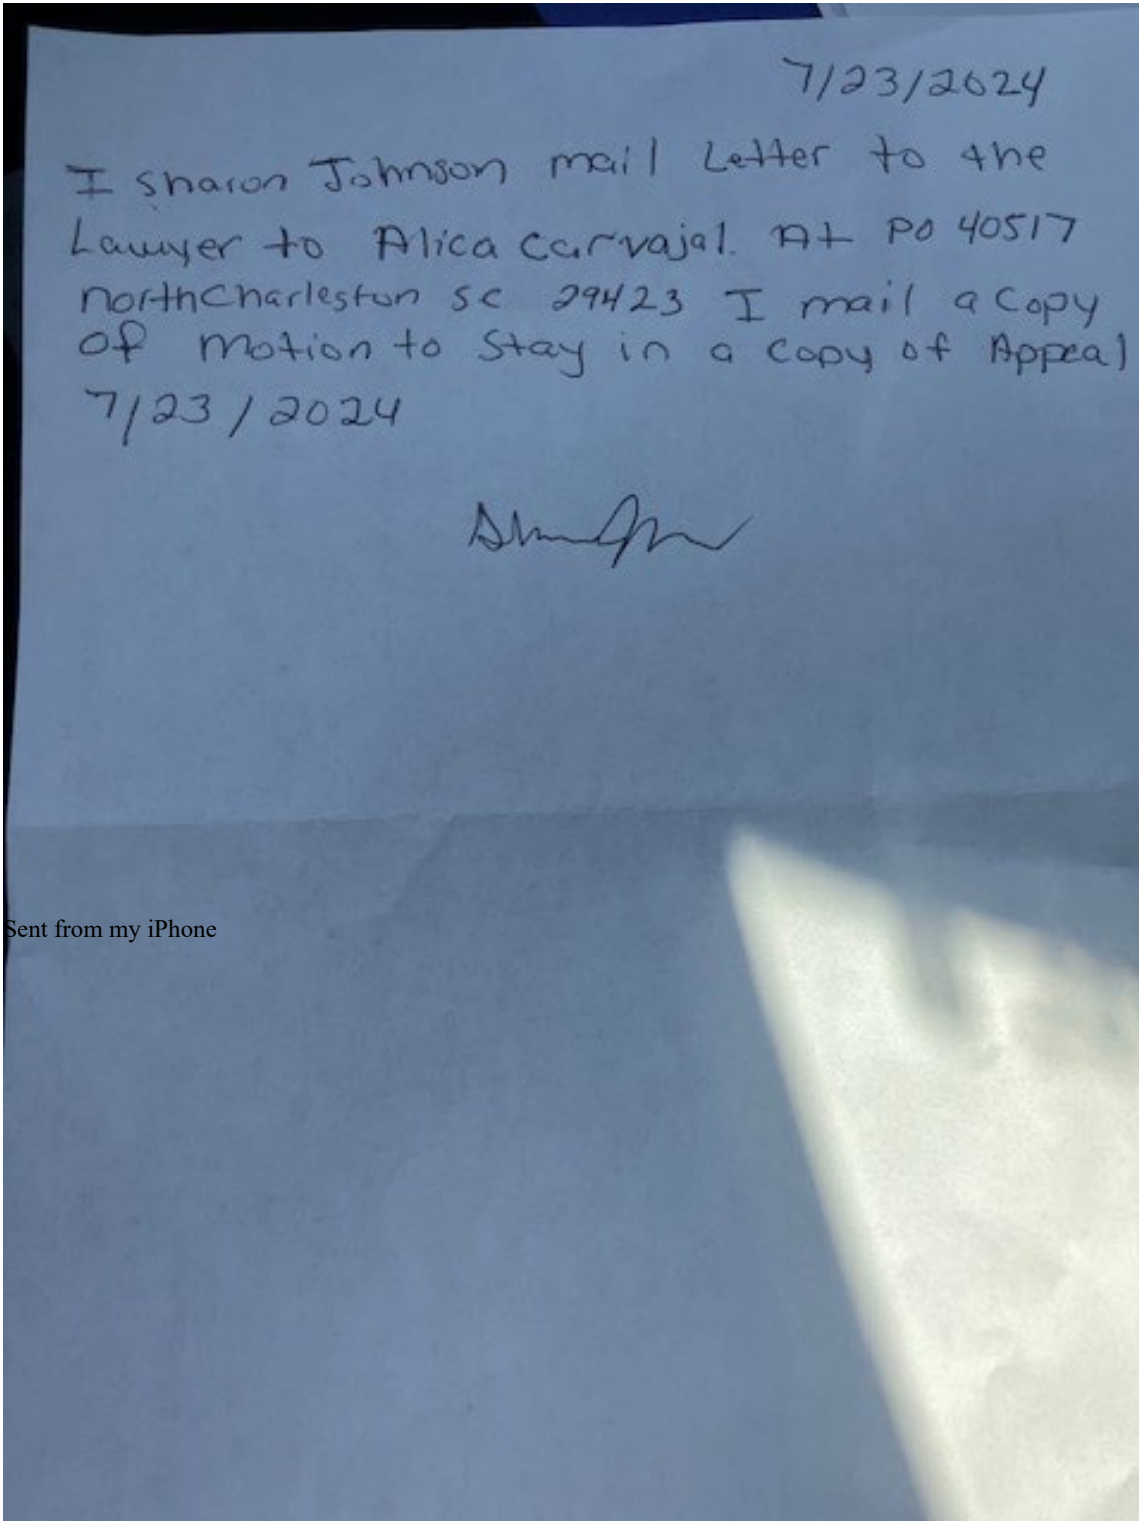 7/23/2024
I Sharon Johnson mail Letter to the
Lawyer to Alica Carvajal. At PO 40517
northCharleston SC 29423 I mail a Copy
Of Motion to Stay in a Copy of Appeal
7/23/2024
Sent from my iPhone